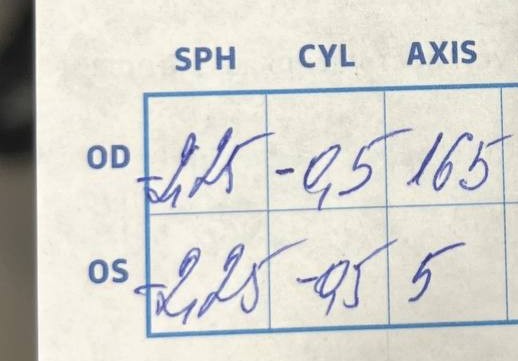 SPH CYL AXIS
OD -2,25 -0,5 165
OS -2,25 -0,5 5